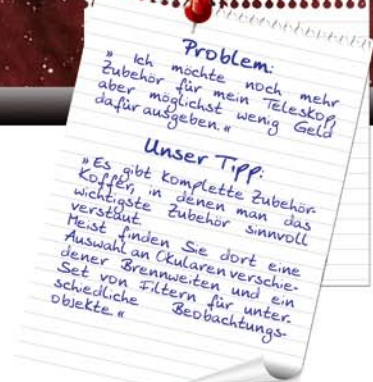 Problem:
» Ich möchte noch mehr
Zubehör für mein Teleskop,
aber möglichst wenig Geld
dafür ausgeben.«
Unser Tipp:
»Es gibt komplette Zubehör-
Koffer, in denen man das
wichtigste Zubehör sinnvoll
verstaut
Meist finden Sie dort eine
Auswahl an Okularen verschie-
dener Brennweiten und ein
Set von Filtern für unter-
schiedliche Beobachtungs-
objekte.«